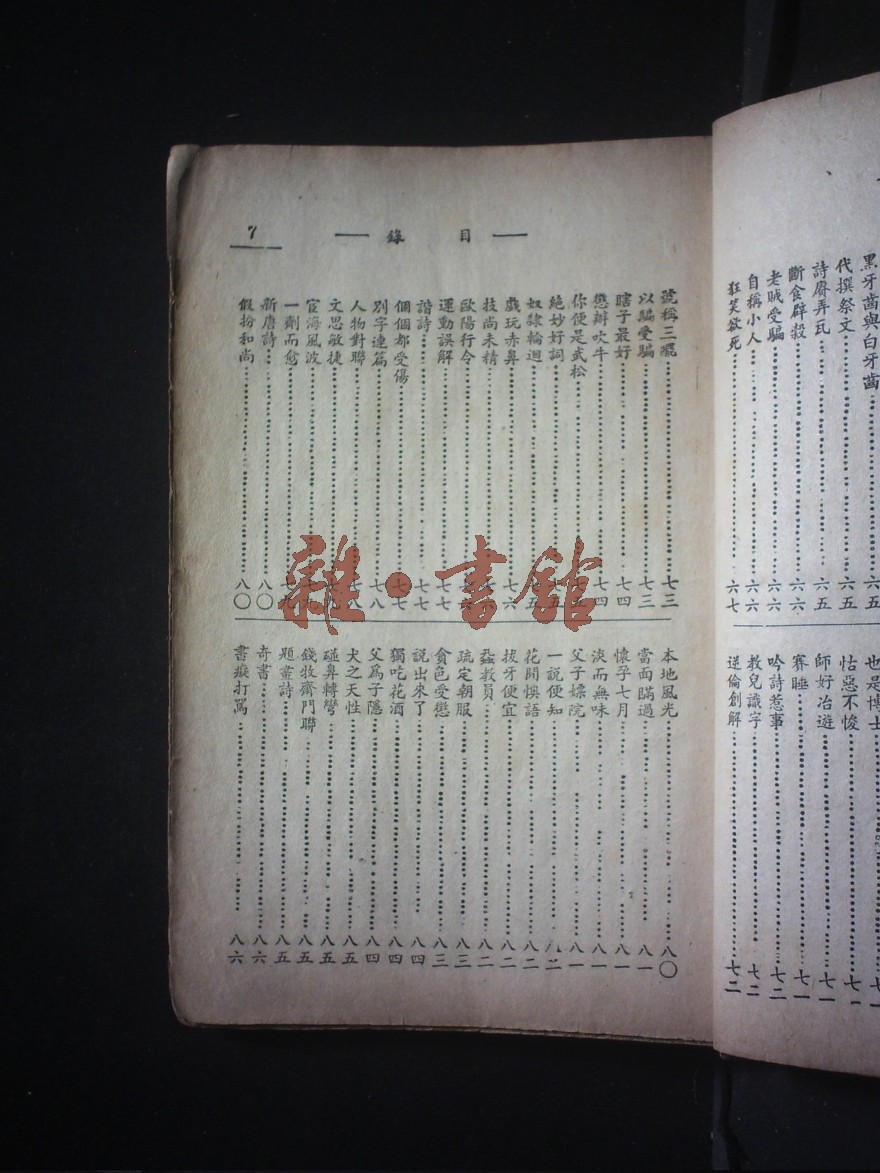 黑牙齒與白牙齒……六五
代撰祭文……六五
詩賡弄瓦……六五
斷食辟穀……六六
老賊受騙……六六
自稱小人……六六
狂笑欲死……六七
也是博士……七一
怙惡不悛……七一
師好冶遊……七一
賽睡……七一
吟詩惹事……七二
教兒識字……七二
逆倫創解……七二
目錄
7
號稱三……七三
以騙受騙……七三
瞎子最好……七四
懲辦吹牛……七四
你便是武松……五
絕妙好詞……五
奴隸輪迴……五
戲玩赤鼻……七六
技尚未精……
歐陽行令……六
運動誤解……七七
諧詩……七七
個個都受傷……七七
別字連篇……七八
人物對聯……八
文思敏捷……
宦海風波……
一劑而愈……九
新唐詩……八〇
假扮和尚……八〇
本地風光……八〇
當面瞞過……八一
懷孕七月……八一
淡而無味……八一
父子嫖院……八一
一說便知……八二
花間悞語……八二
拔牙便宜……八二
蝨教員……八二
疏定朝服……八三
貪色受懲……八三
說出來了……八四
獨吃花酒……八四
父爲子隱……八四
犬之天性……八五
碰鼻轉彎……八五
錢牧齋門聯……八五
題畫詩……八五
奇書……八六
書癡打罵……八六
雜·書館